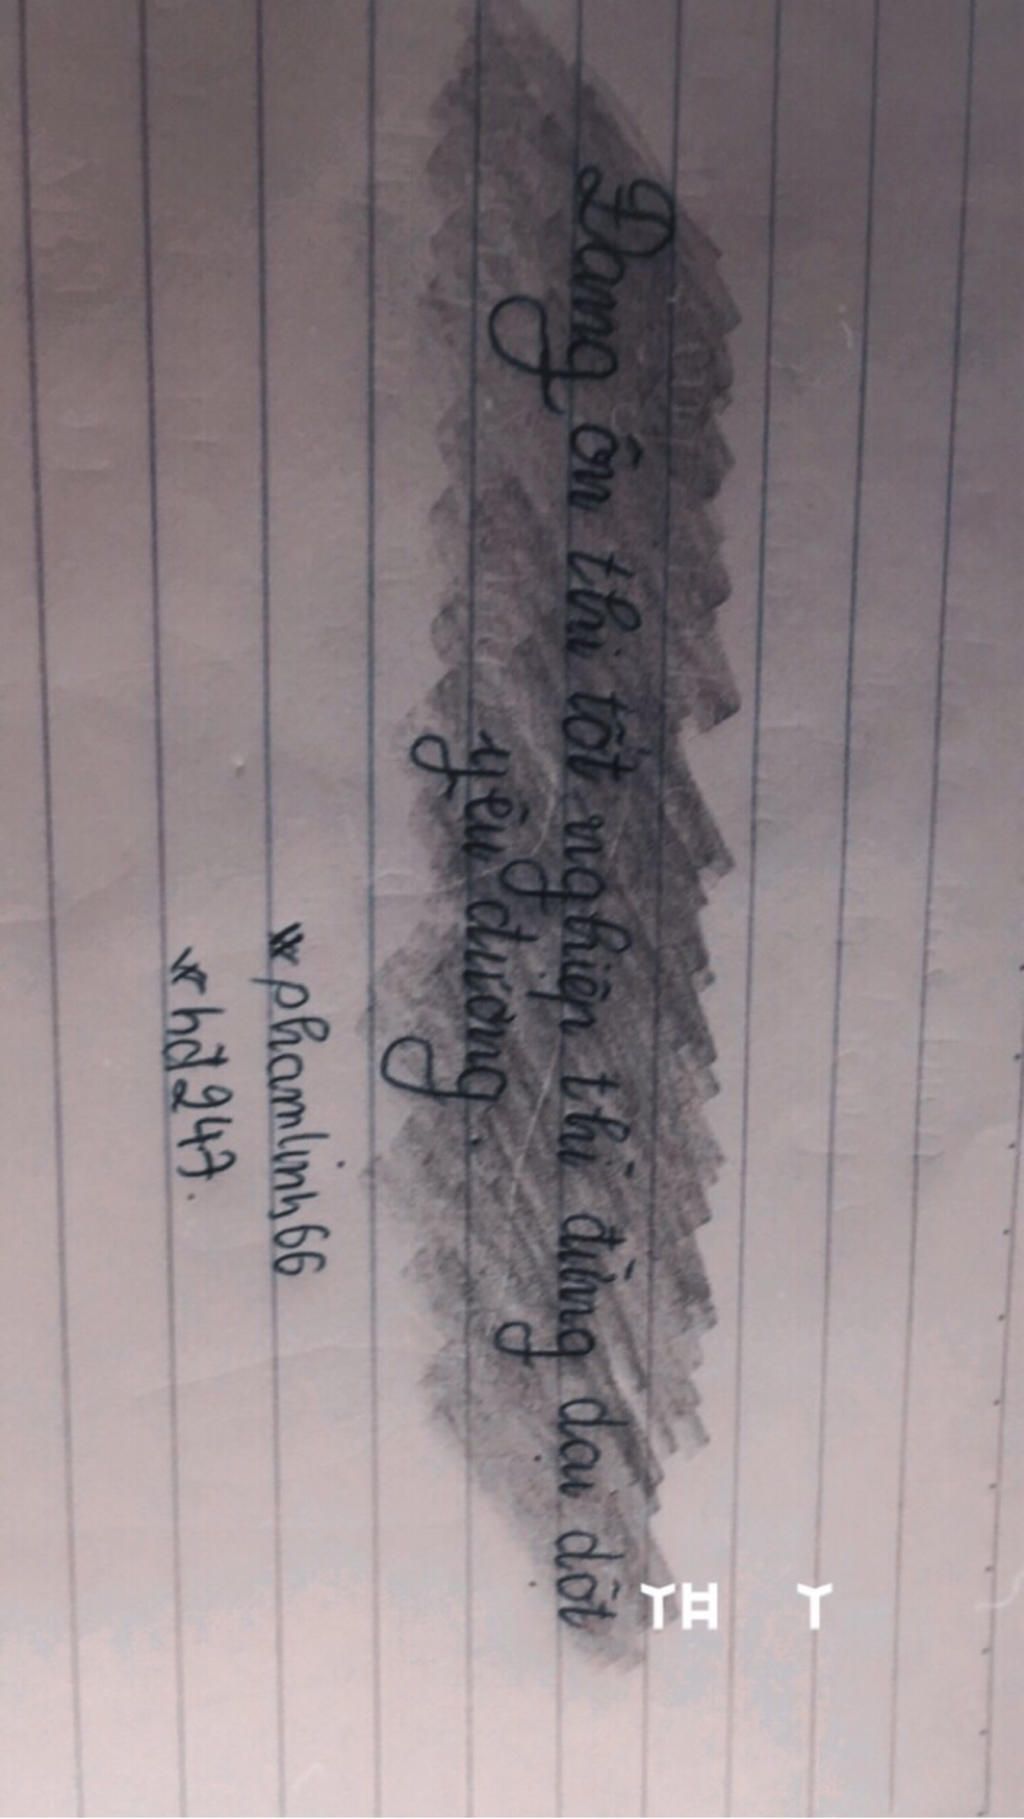 Đang ôn thi tốt nghiệp thì đừng dại dột
yêu đương.
phamlinh66
hđ247.
TH T